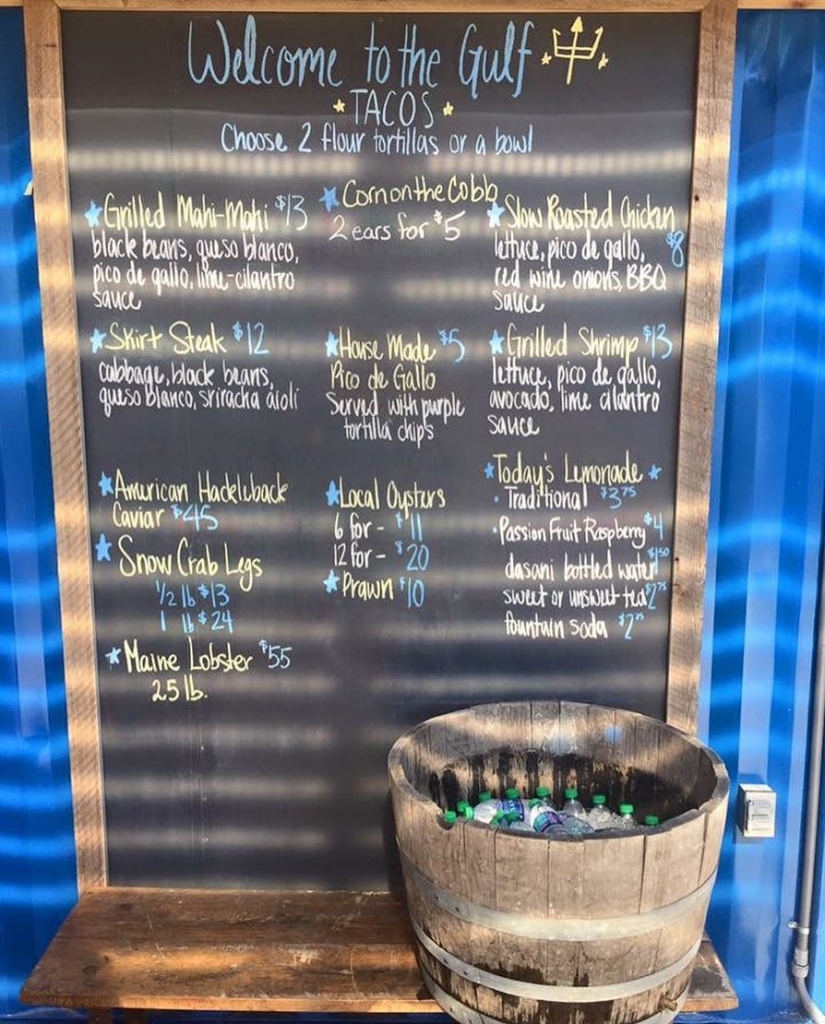 Welcome to the Gulf
TACOS
Choose 2 flour tortillas or a bowl
Grilled Mahi-Mahi $13
black beans, queso blanco,
pico de gallo, lime-cilantro
sauce
Skirt Steak $12
cabbage, black beans,
queso blanco, sriracha aioli
American Hackleback
Caviar $45
Snow Crab Legs
1/2 lb $13
1 lb $24
Maine Lobster $55
2.5 lb.
Corn on the Cobb
2 ears for $5
House Made $5
Pico de Gallo
Served with purple
tortilla chips
Local Oysters
6 for - $11
12 for - $20
Prawn $10
Slow Roasted Chicken
lettuce, pico de gallo, $8
red wine onions, BBQ
sauce
Grilled Shrimp $13
lettuce, pico de gallo,
avocado, lime cilantro
sauce
Today's Lemonade
· Traditional $3.75
· Passion Fruit Raspberry $4
dasani bottled water $1.50
sweet or unsweet tea $2.75
fountain soda